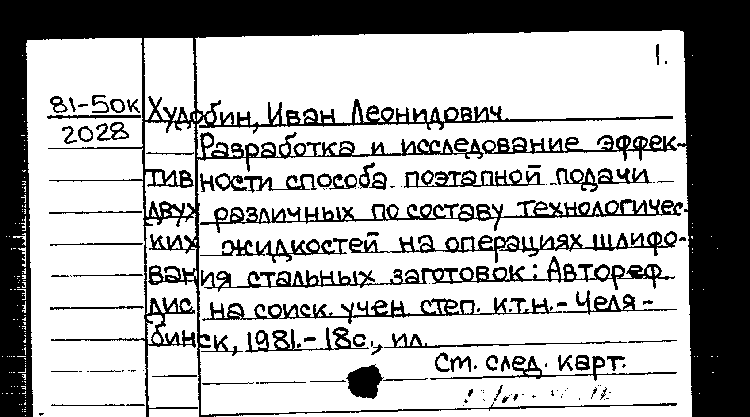 1.
81-50к Худобин, Иван Леонидович
2028
Разработка и исследование эффек-
тивности способа поэтапной подачи
двух различных по составу технологичес-
ких жидкостей на операциях шлифо-
вания стальных заготовок: Автореф.
дис. на соиск. учен. степ. к.т.н. - Челя-
бинск, 1981. - 18с., ил.
Ст. след. карт.